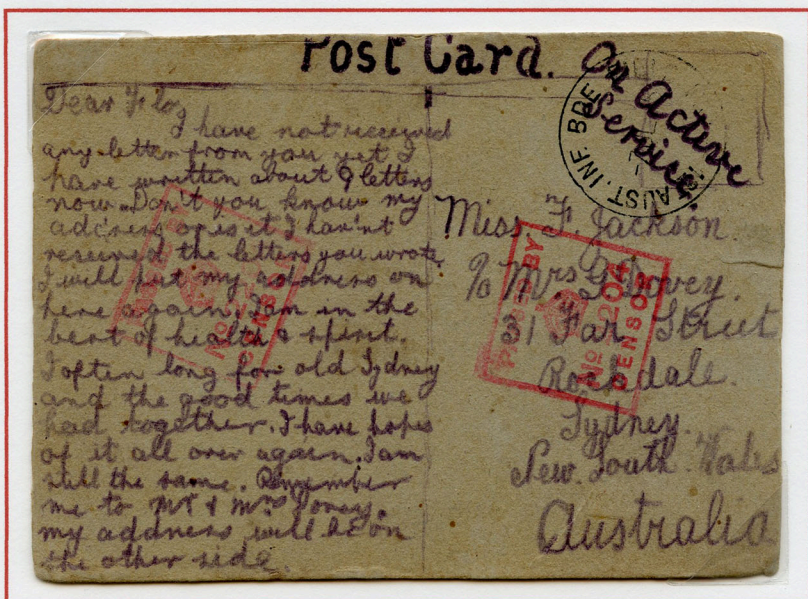 Post Card.
On Active
Service.
AUST. INF. BDE
Dear Flo,
I have not received
any letter from you yet I
have written about 9 letters
now. Don't you know my
address or is it I hav'nt
received the letters you wrote.
I will put my address on
here again. I am in the
best of health & spirit.
I often long for old Sydney
and the good times we
had together. I have hopes
of it all over again. I am
still the same. Remember
me to Mr & Mrs Dovey.
my address will be on
the other side.
Miss. F. Jackson.
c/o Mrs G. Dovey.
31 Farr Street
Rockdale.
Sydney.
New. South. Wales
Australia
PASSED BY
No 1204
CENSOR